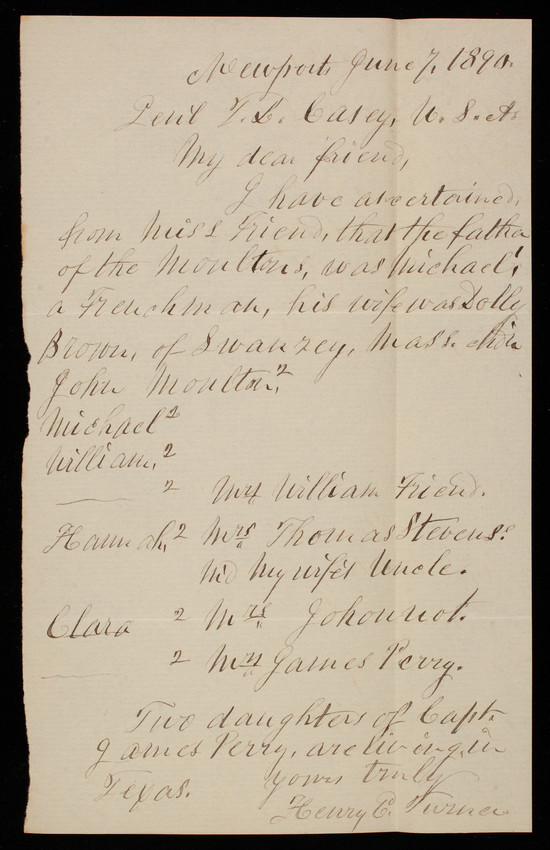 Newport June 7, 1890.
Genl T. L. Casey, U. S. A.
My dear friend,
I have ascertained,
from Miss Friend, that the father
of the Moultons, was Michael,1
a Frenchman, his wife was Dolly
Brown, of Swanzey, Mass.
John Moulton,2
Michael2
William,2
2 Mrs William Friend.
Hannah,2 Mrs Thomas Stevens.
my wife's Uncle.
Clara 2 Mrs Johonnot.
2 Mrs James Perry.
Two daughters of Capt.
James Perry, are living, in
Texas. Yours truly
Henry E. Turner